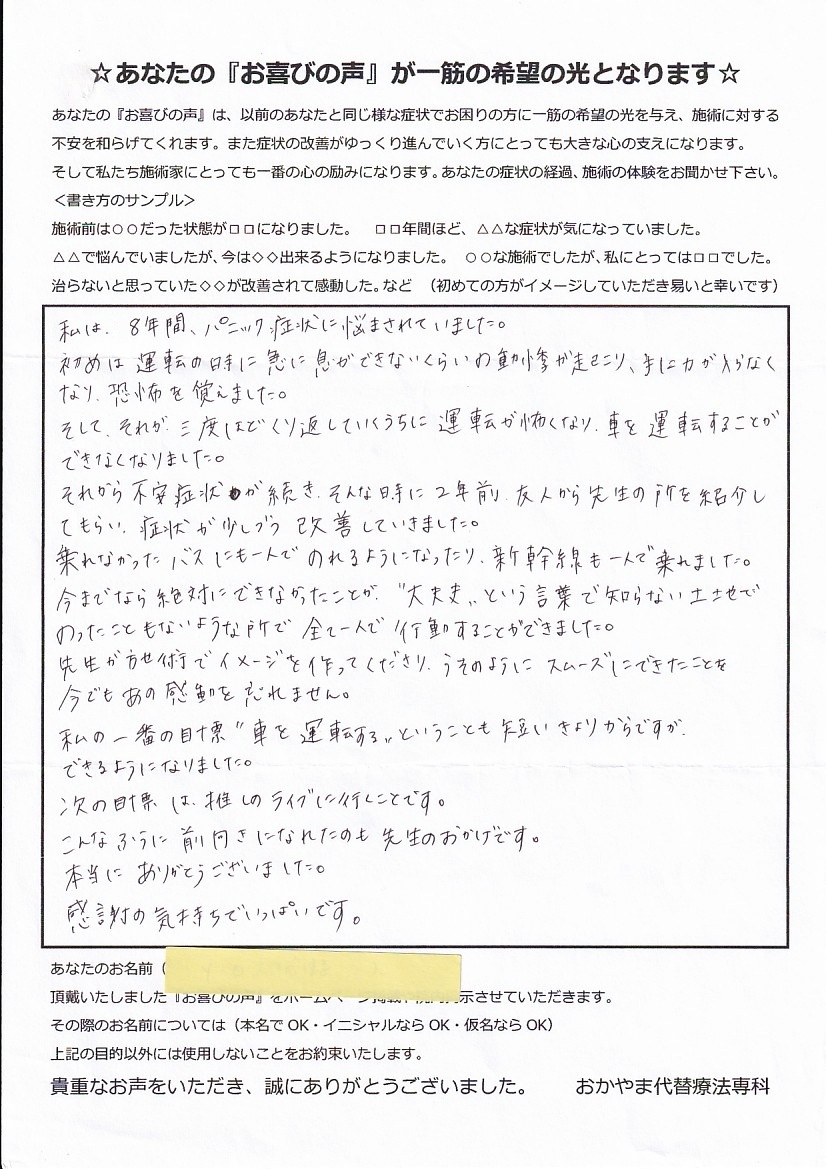 ☆あなたの『お喜びの声』が一筋の希望の光となります☆
あなたの『お喜びの声』は、以前のあなたと同じ様な症状でお困りの方に一筋の希望の光を与え、施術に対する
不安を和らげてくれます。また症状の改善がゆっくり進んでいく方にとっても大きな心の支えになります。
そして私たち施術家にとっても一番の心の励みになります。あなたの症状の経過、施術の体験をお聞かせ下さい。
＜書き方のサンプル＞
施術前は○○だった状態が□□になりました。　□□年間ほど、△△な症状が気になっていました。
△△で悩んでいましたが、今は◇◇出来るようになりました。　○○な施術でしたが、私にとっては□□でした。
治らないと思っていた◇◇が改善されて感動した。など　（初めての方がイメージしていただき易いと幸いです）
私は、8年間、パニック症状に悩まされていました。
初めは運転の時に急に息ができないくらいの動悸が起こり、手に力が入らなく
なり、恐怖を覚えました。
そして、それが二三度ほどくり返していくうちに運転が怖くなり、車を運転することが
できなくなりました。
それから不安症状が続き、そんな時に2年前、友人から先生の所を紹介し
てもらい、症状が少しづつ改善していきました。
乗れなかったバスにも一人でのれるようになったり、新幹線も一人で乗れました。
今までなら絶対にできなかったことが、"大丈夫"という言葉で知らない土地で
のったこともないような所で全て一人で行動することができました。
先生が施術でイメージを作ってくださり、うそのようにスムーズにできたことを
今でもあの感動を忘れません。
私の一番の目標"車を運転する"ということも短いきょりからですが、
できるようになりました。
次の目標は、推しのライブに行くことです。
こんなふうに前向きになれたのも先生のおかげです。
本当にありがとうございました。
感謝の気持ちでいっぱいです。
あなたのお名前（
頂戴いたしました『お喜びの声』をホームページ掲載や院内展示させていただきます。
その際のお名前については（本名で OK・イニシャルなら OK・仮名なら OK）
上記の目的以外には使用しないことをお約束いたします。
貴重なお声をいただき、誠にありがとうございました。　　おかやま代替療法専科